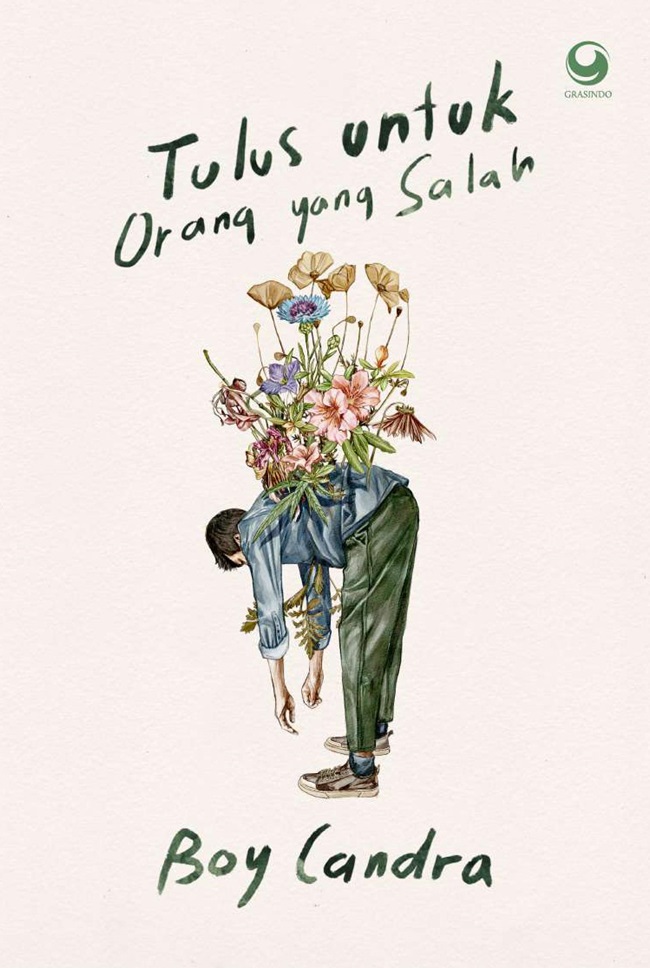 GRASINDO
Tulus untuk
Orang yang Salah
Boy Candra